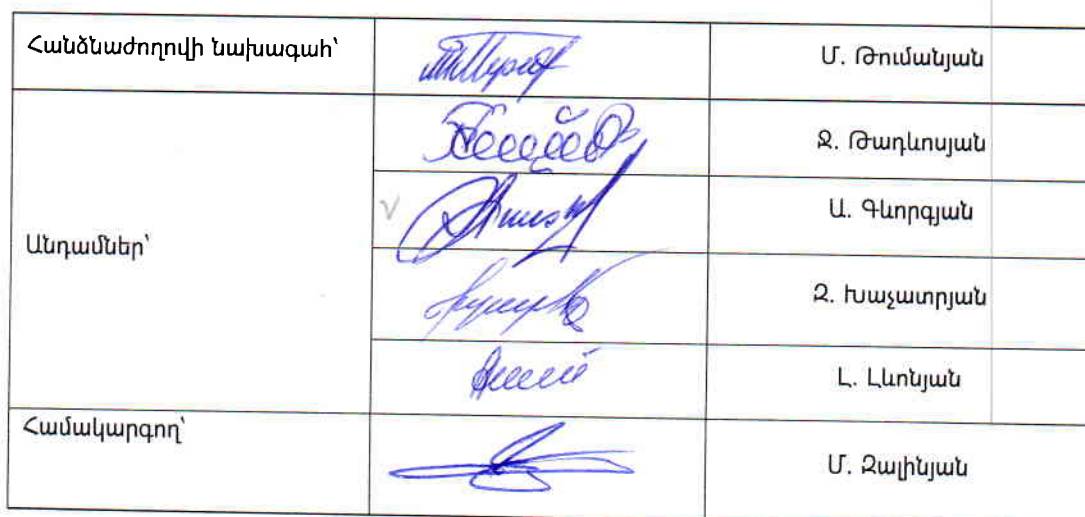 Հանձնաժողովի նախագահ՝
Մ. Թումանյան
Անդամներ՝
Ջ. Թադևոսյան
Ա. Գևորգյան
Զ. Խաչատրյան
Լ. Լևոնյան
Համակարգող՝
Մ. Զալինյան